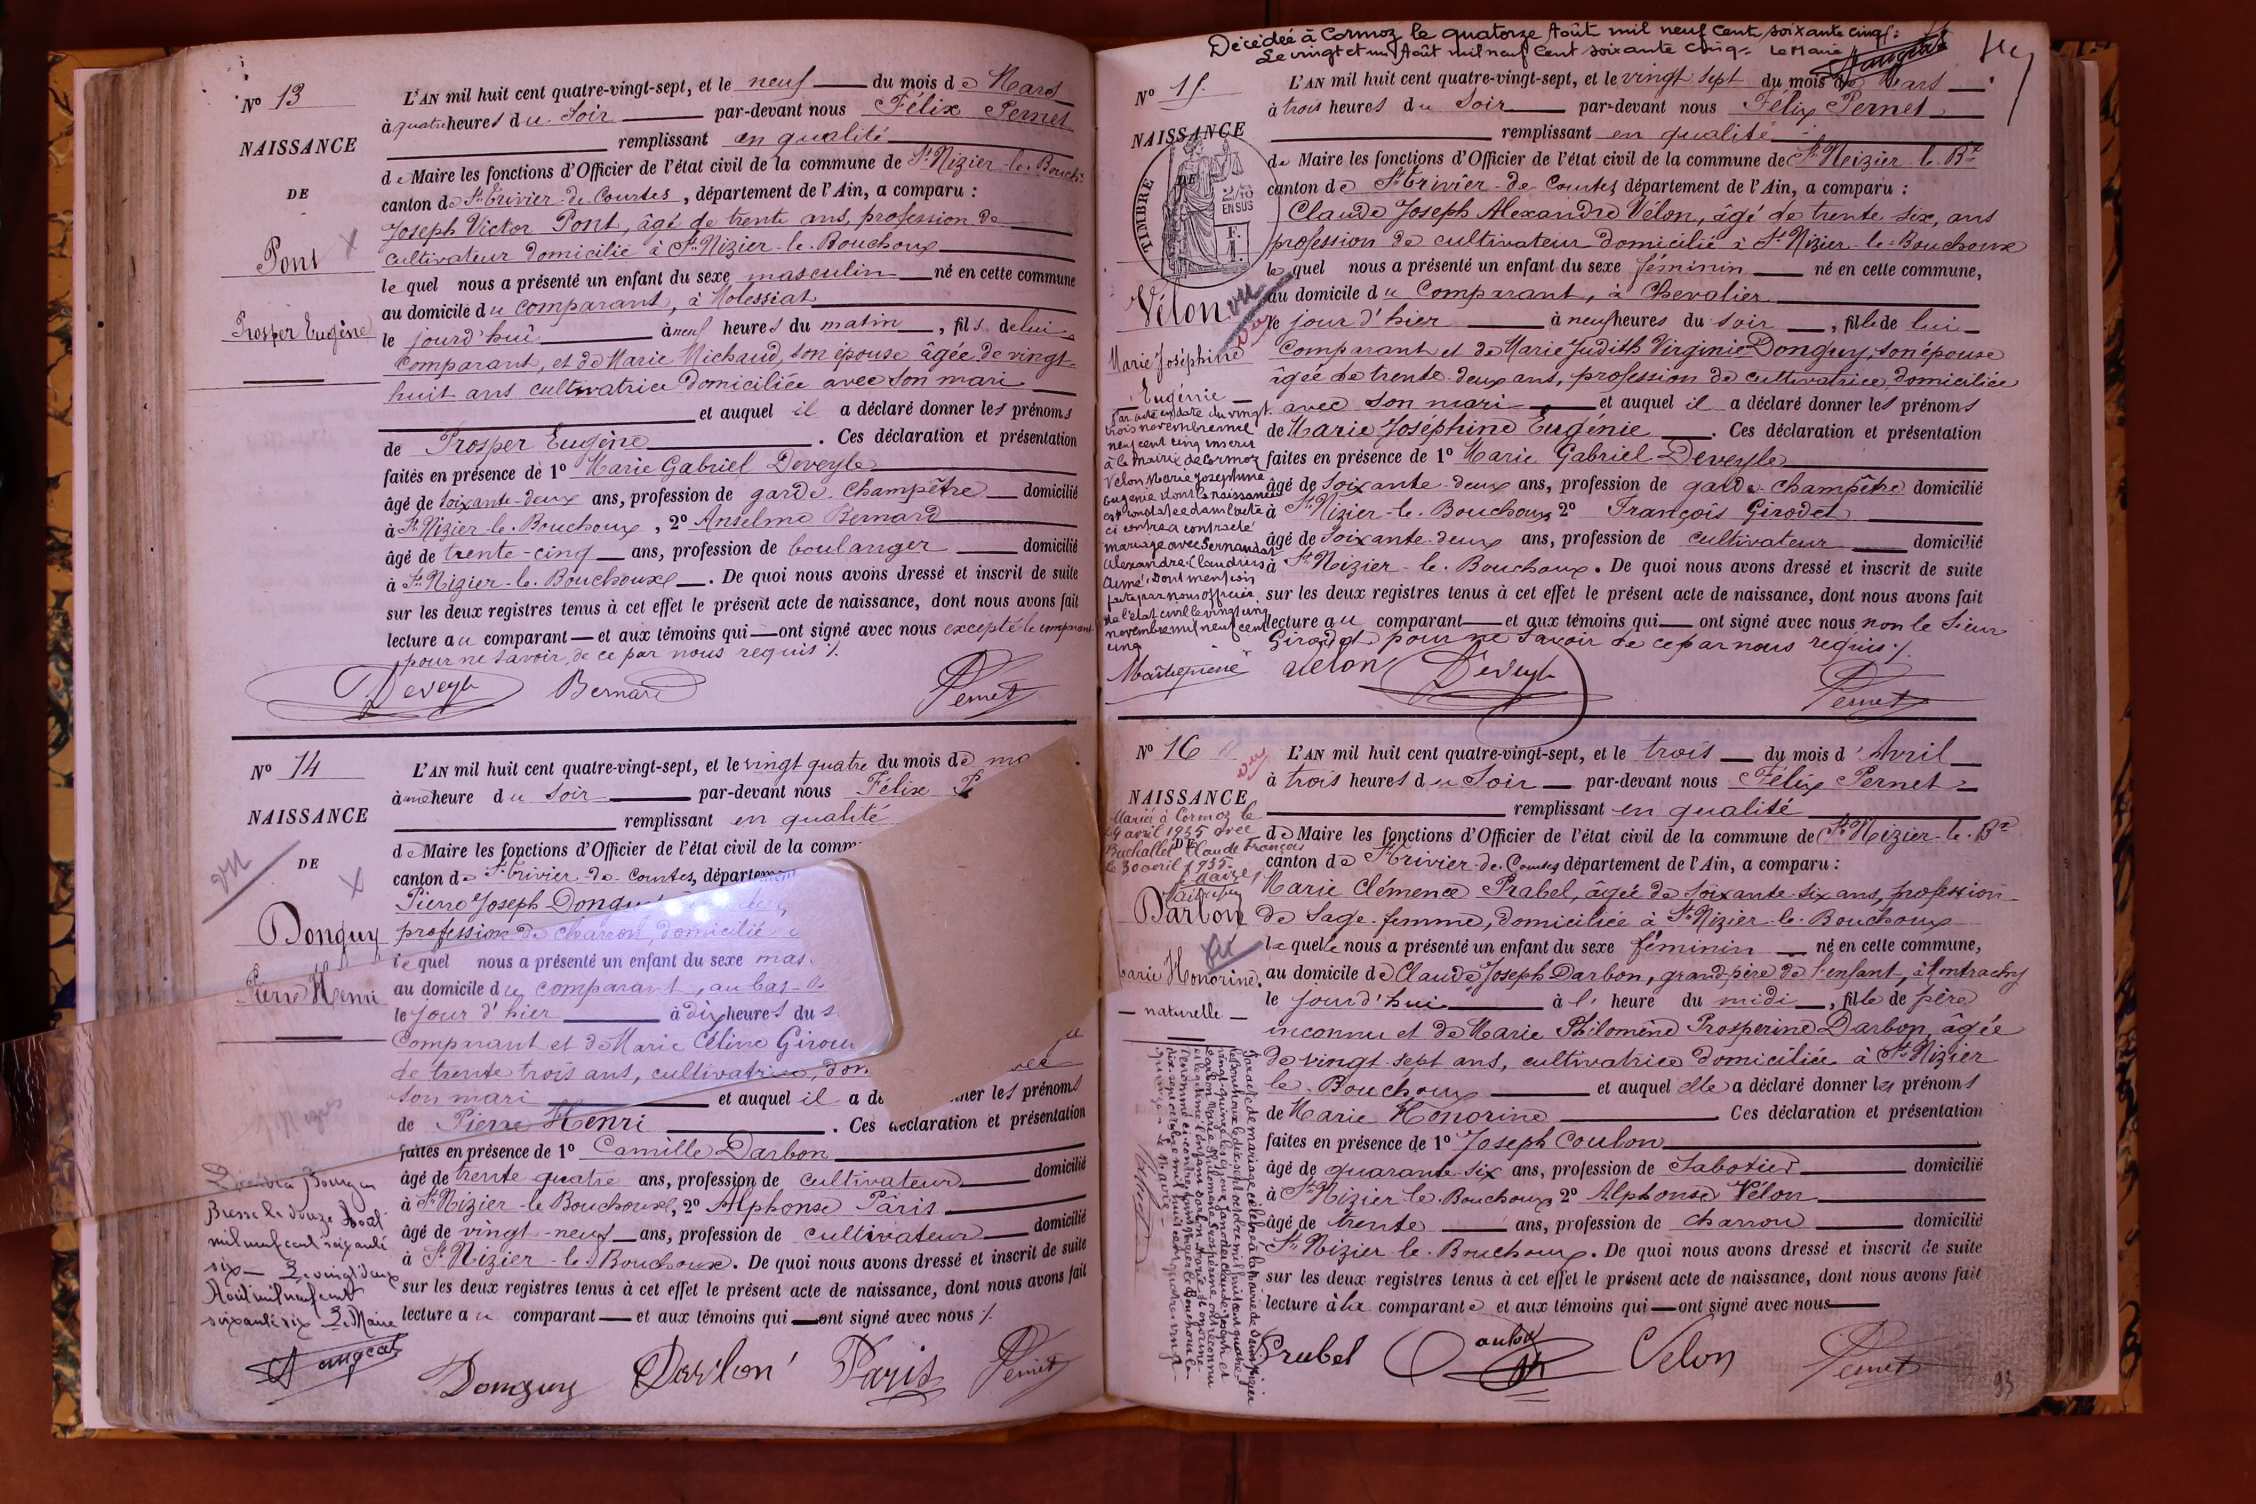 Nº 13
NAISSANCE
DE
Pont
Prosper Eugène
L'AN mil huit cent quatre-vingt-sept, et le neuf du mois de Mars
à quatre heures du Soir par-devant nous Félix Pernet
remplissant en qualité
de Maire les fonctions d'Officier de l'état civil de la commune de St Nizier-le-Bouch
canton de St Trivier-de-Courtes, département de l'Ain, a comparu :
Joseph Victor Pont, âgé de trente ans, profession de
cultivateur domicilié à St Nizier-le-Bouchoux
le quel nous a présenté un enfant du sexe masculin né en cette commune
au domicile du comparant, à Molessiat
le jourd'hui à neuf heures du matin, fils de lui
comparant, et de Marie Michaud, son épouse âgée de vingt-
huit ans cultivatrice domiciliée avec son mari
et auquel il a déclaré donner les prénoms
de Prosper Eugène. Ces déclaration et présentation
faites en présence de 1º Marie Gabriel Deveyle
âgé de soixante-deux ans, profession de garde-champêtre domicilié
à St Nizier-le-Bouchoux, 2º Anselme Bernard
âgé de trente-cinq ans, profession de boulanger domicilié
à St Nizier-le-Bouchoux. De quoi nous avons dressé et inscrit de suite
sur les deux registres tenus à cet effet le présent acte de naissance, dont nous avons fait
lecture au comparant et aux témoins qui ont signé avec nous excepté le comparant
pour ne savoir, de ce par nous requis ./.
Deveyle Bernard Pernet
Nº 14
NAISSANCE
DE
vu
Donguy
Pierre Henri
L'AN mil huit cent quatre-vingt-sept, et le vingt quatre du mois de
à une heure du soir par-devant nous Félix
remplissant en qualité
de Maire les fonctions d'Officier de l'état civil de la
canton de St Trivier-de-Courtes, département
Pierre Joseph Donguy
profession de charron, domicilié
le quel nous a présenté un enfant du sexe
au domicile du comparant, au
le jour d'hier à dix heures du
comparant et de Marie Céline
de trente trois ans, cultivatrice,
son mari et auquel il a les prénoms
de Pierre Henri. Ces déclaration et présentation
faites en présence de 1º Camille Darbon
âgé de trente quatre ans, profession de cultivateur domicilié
à St Nizier-le-Bouchoux, 2º Alphonse Pâris
âgé de vingt-neuf ans, profession de cultivateur domicilié
à St Nizier-le-Bouchoux. De quoi nous avons dressé et inscrit de suite
sur les deux registres tenus à cet effet le présent acte de naissance, dont nous avons fait
lecture au comparant et aux témoins qui ont signé avec nous ./.
Bresse le douze Août
mil neuf cent soixante
six Le vingt deux
Août mil neuf cent
soixante six Le Maire
Donguy Darbon Pâris Pernet
Décédée à Cormoz le quatorze Août mil neuf cent soixante cinq.
Le vingt et un Août mil neuf cent soixante cinq. Le Maire
Nº 15
NAISSANCE
DE
TIMBRE
2/10
EN SUS
Vélon
vu
Marie Joséphine
Eugénie
Par acte en date du vingt
trois novembre mil
neuf cent cinq inscrit
à la mairie de Cormoz
Vélon Marie Joséphine
Eugénie dont la naissance
est constatée dans l'acte
ci contre a contracté
mariage avec
Alexandre Claudius
Aimé. Dont mention
faite par nous officier
de l'état civil le vingt cinq
novembre mil neuf cent
cinq
L'AN mil huit cent quatre-vingt-sept, et le vingt sept du mois de Mars
à trois heures du Soir par-devant nous Félix Pernet
remplissant en qualité
de Maire les fonctions d'Officier de l'état civil de la commune de St Nizier-le-Bx
canton de St Trivier-de-Courtes département de l'Ain, a comparu :
Claude Joseph Alexandre Vélon, âgé de trente-six, ans
profession de cultivateur domicilié à St Nizier-le-Bouchoux
le quel nous a présenté un enfant du sexe féminin né en cette commune,
au domicile du Comparant, à Chevalier
le jour d'hier à neuf heures du soir, fille de lui
comparant et de Marie Judith Virginie Donguy, son épouse
âgée de trente-deux ans, profession de cultivatrice, domiciliée
avec son mari et auquel il a déclaré donner les prénoms
de Marie Joséphine Eugénie. Ces déclaration et présentation
faites en présence de 1º Marie Gabriel Deveyle
âgé de soixante-deux ans, profession de garde-champêtre domicilié
à St Nizier-le-Bouchoux 2º François Girodet
âgé de soixante-deux ans, profession de cultivateur domicilié
à St Nizier-le-Bouchoux. De quoi nous avons dressé et inscrit de suite
sur les deux registres tenus à cet effet le présent acte de naissance, dont nous avons fait
lecture au comparant et aux témoins qui ont signé avec nous non le Sieur
Girodet pour ne savoir de ce par nous requis ./.
Vélon Deveyle Pernet
Nº 16
vu
NAISSANCE
DE
Mariée à Cormoz le
avril 1935 avec
Buchallet Claude François
le 30 avril 1935.
Le Maire,
Darbon
vu
Marie Honorine
naturelle
L'AN mil huit cent quatre-vingt-sept, et le trois du mois d'Avril
à trois heures du Soir par-devant nous Félix Pernet
remplissant en qualité
de Maire les fonctions d'Officier de l'état civil de la commune de St Nizier-le-Bx
canton de St Trivier-de-Courtes département de l'Ain, a comparu :
Marie Clémence Prabel, âgée de soixante-six ans, profession
de Sage-femme, domiciliée à St Nizier-le-Bouchoux
la quelle nous a présenté un enfant du sexe féminin né en cette commune,
au domicile de Claude Joseph Darbon, grand-père de l'enfant, à Montrachy
le jourd'hui à l'heure du midi, fille de père
inconnu et de Marie Philomène Prosperine Darbon, âgée
de vingt-sept ans, cultivatrice domiciliée à St Nizier
le-Bouchoux et auquel elle a déclaré donner les prénoms
de Marie Honorine Ces déclaration et présentation
faites en présence de 1º Joseph Coulon
âgé de quarante-six ans, profession de Sabotier domicilié
à St Nizier-le-Bouchoux 2º Alphonse Vélon
âgé de trente ans, profession de charron domicilié
St Nizier-le-Bouchoux. De quoi nous avons dressé et inscrit de suite
sur les deux registres tenus à cet effet le présent acte de naissance, dont nous avons fait
lecture à la comparante et aux témoins qui ont signé avec nous
Prabel Coulon Velon Pernet
93